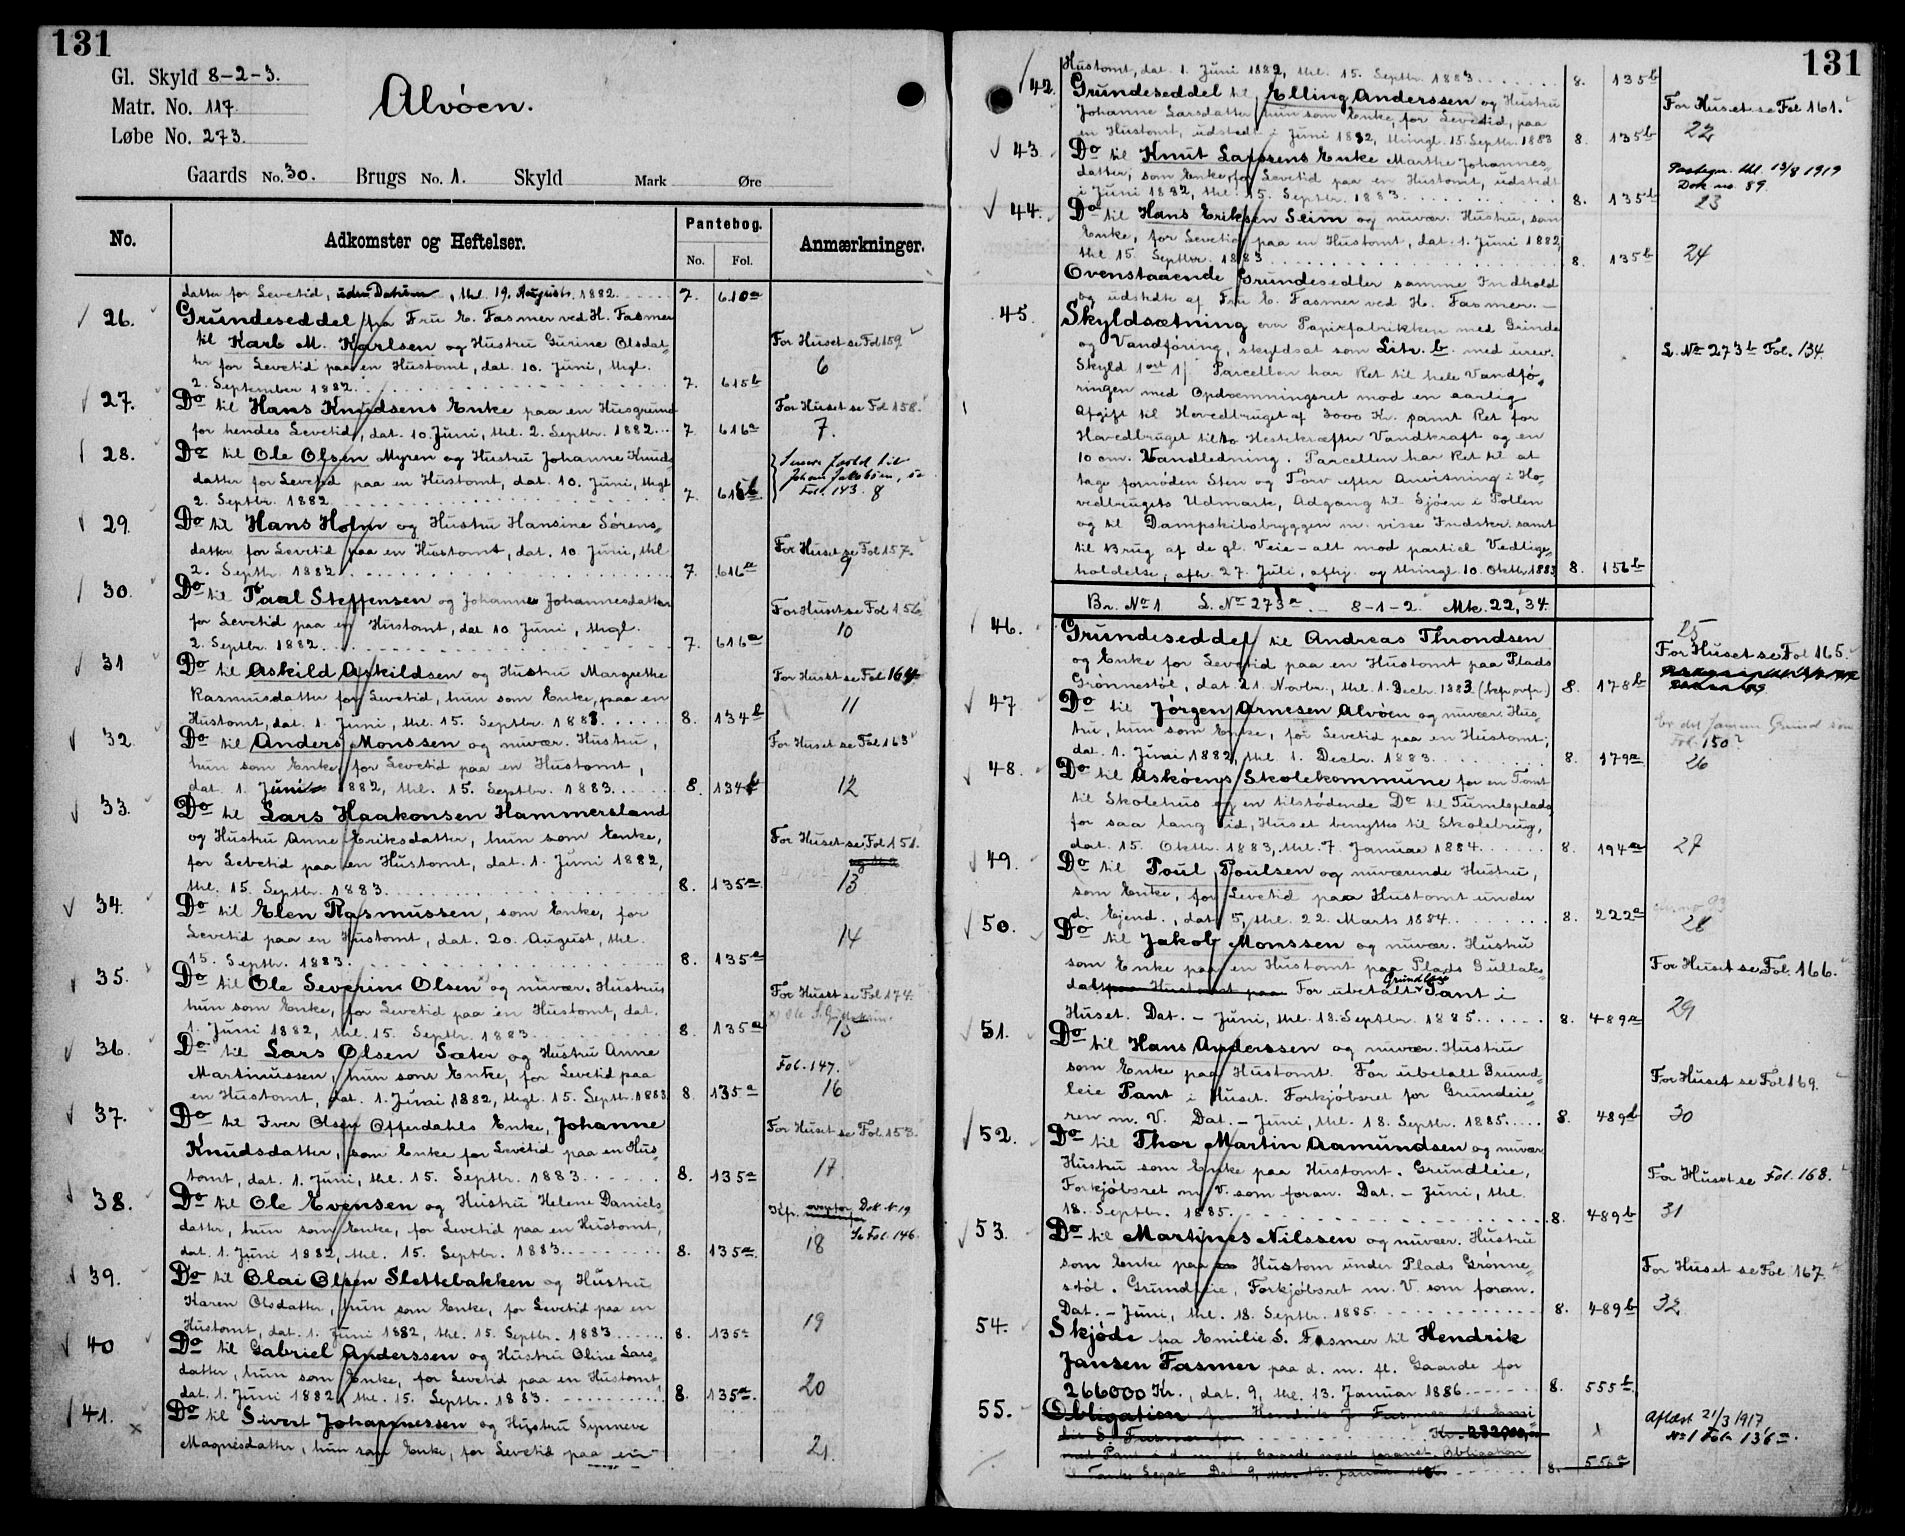 131
Gl. Skyld 8-2-3.
Matr. No. 117.
Løbe No. 273.
Alvöen.
Gaards No. 30. Brugs No. 1. Skyld Mark Øre
No. Adkomster og Heftelser. Pantebog. No. Fol. Anmærkninger.
datter for Levetid, uden Datum, thl. 19. August 1882. 7. 610a
26. Grundeseddel fra Fru E. Fasmer ved H. Fasmer
til Karl M. Karlsen og Hustru Gurine Olsdat-
ter for Levetid paa en Hustomt, dat. 10. Juni, thgl.
2. September 1882. 7. 615b
For Huset se Fol 159.
6
27. Do til Hans Knudsens Enke paa en Husgrund
for hendes Levetid, dat. 10. Juni, thl. 2. Septbr. 1882. 7. 616a
For Huset se Fol 158.
7.
28. Do til Ole Olsen Myren og Hustru Johanne Knuds-
datter for Levetid paa en Hustomt, dat. 10. Juni, thgl
2. Septbr. 1882 7.
Johan Jakobsen, se
Fol. 143. 8
29. Do til Hans Holm og Hustru Hansine Sörens-
datter for Levetid paa en Hustomt, dat. 10. Juni, thl
2. Septbr. 1882. 7. 616a
For Huset se Fol 157.
9
30. Do til Paal Steffensen og Johanne Johannesdatter
for Levetid paa en Hustomt, dat 10 Juni, thgl.
2. Septbr. 1882. 7. 616a
For Huset se Fol 156
10
31 Do til Askild Askildsen og Hustru Margrethe
Rasmusdatter for Levetid, hun som Enke, paa en
Hustomt, dat. 1. Juni, thl. 15. Septbr. 1883. 8. 134b
For Huset se Fol 164.
11
32. Do til Anders Monssen og nuvær. Hustru,
hun som Enke, for Levetid paa en Hustomt,
dat. 1. Juni 1882, thl. 15. Septbr. 1883. 8. 134b
For Huset se Fol 163
12
33. Do til Lars Haakonsen Hammersland
og Hustru Anne Eriksdatter, hun som Enke,
for Levetid paa en Hustomt, dat. 1. Juni 1882,
thl. 15. Septbr. 1883. 8. 135a
For Huset se Fol 151.
13
34. Do til Elen Rasmussen, som Enke, for
Levetid paa en Hustomt, dat. 20. August, thl.
15. Septbr. 1883. 8. 135a
14
35. Do til Ole Severin Olsen x) og nuvær. Hustru
hun som Enke, for Levetid paa en Hustomt, dat.
1. Juni 1882, thl. 15. Septbr. 1883. 8. 135a
For Huset se Fol 174.
15
36. Do til Lars Olsen Sæter og Hustru Anne
Martinussen, hun som Enke, for Levetid paa
en Hustomt, dat. 1. Juni 1882, thgl. 15. Septbr. 1883 8. 135a
Fol. 147.
16
37. Do til Iver Olsen Offerdahls Enke, Johanne
Knudsdatter, som Enke for Levetid paa en Hus-
tomt, dat. 1. Juni, thl. 15. Septbr. 1883. 8. 135a
For Huset se Fol. 153.
17
38. Do til Ole Evensen og Hustru Helene Daniels-
datter, hun som Enke, for Levetid paa en Hustomt,
dat. 1. Juni 1882, thl. 15. Septbr. 1883. 8. 135a.
Se Fol. 146.
18
39. Do til Olai Olsen Slettebakken og Hustru
Karen Olsdatter, hun som Enke, for Levetid paa en
Hustomt, dat. 1. Juni 1882, thl. 15. Septbr. 1883. 8. 135a
19
40 Do til Gabriel Anderssen og Hustru Oline Lars-
datter, hun som Enke, for Levetid paa en Hustomt
dat. 1. Juni 1882, thl. 15. Septbr. 1883. 8. 135a.
20
41. Do til Sivert Johannessen og Hustru Synneve
Magnesdatter, hun som Enke, for Levetid paa en
21
131
Hustomt, dat. 1. Juni 1882, thl. 15. Septbr. 1883. 8. 135b
42. Grundeseddel til Elling Anderssen og Hustru
Johanne Larsdatter hun som Enke, for Levetid, paa
en Hustomt, udstedt i Juni 1882, thingl. 15. Septbr. 1883 8. 135b
For Huset se Fol 161.
22
43. Do til Knut Larssens Enke Marthe Johannes-
datter, som Enke, for Levetid paa en Hustomt, udstedt
i Juni 1882, thl. 15. Septbr. 1883. 8. 135b
Paategn. thl. 13/8 1919
Dok no. 89.
23
44. Do til Hans Eriksen Seim og nuvær. Hustru, som
Enke, for Levetid paa en Hustomt, dat. 1. Juni 1882,
thl 15. Septbr. 1883 8. 135b
24
Ovenstaaende Grundesedler samme Indhold
og udstedt af Fru E. Fasmer ved H. Fasmer. —
45. Skyldsætning over Papirfabrikken med Grunde
og Vandföring, skyldsat som Litr. b. med urev.
Skyld 1 ort 1 j Parcellen har Ret til hele Vandfö-
ringen med Opdæmningsret mod en aarlig
Afgift til Hovedbruget af 3000 Kr. samt Ret for
Hovedbruget til 10 Hestekræfter Vandkraft og en
10 cm. Vandledning. Parcellen har Ret til at
tage fornöden Sten og Törv efter Anvisning i Ho-
vedbrugets Udmark, Adgang til Sjöen i Pollen
og til Dampskibsbryggen m. visse Indskr. samt
til Brug af de gl. Veie – alt mod partiel Vedlige-
holdelse, afh. 27. Juli, afhj. og thingl. 10. Oktbr 1883 8. 156b
L. No 273b Fol. 134.
Br. No 1 L. No 273a. — 8-1-2. Mk. 22,34.
46. Grundeseddel til Andreas Throndsen
og Enke for Levetid paa en Hustomt paa Plads
Grönnestöl, dat. 21. Novbr., thl. 1. Decbr. 1883 8. 178b
25
For Huset se Fol 165.
47 Do til Jörgen Arnesen Alvöen og nuvær. Hus-
tru, hun som Enke, for Levetid paa en Hustomt,
dat. 1. Juni 1882, thl. 1. Decbr. 1883. 8. 179a
Er det samme Grund som
Fol. 150?
26
48. Do til Asköens Skolekommune for en Tomt
til Skolehus og en tilstödende Do til Tumleplads
for saa lang Tid, Huset benyttes til Skolebrug,
dat. 15. Oktbr. 1883, thl. 7. Januar 1884. 8. 194a
27
49. Do til Poul Poulsen og nuværende Hustru,
som Enke, for Levetid paa Hustomt under
d. Ejend., dat. 5, thl. 22. Marts 1884. 8. 222a
28
50. Do til Jakob Monssen og nuvær. Hustru
som Enke paa en Hustomt paa Plads Gullaks-
dal paa Hustomt paa For ubetalt Grundleie Pant i
Huset. Dat. – Juni, thl. 18. Septbr. 1885. 8. 489a
For Huset se Fol. 166.
29
51. Do til Hans Anderssen og nuvær. Hustru
som Enke paa Hustomt. For ubetalt Grund-
leie Pant i Huset. Forkjöbsret for Grundeie-
ren m. V. Dat. – Juni, thl. 18. Septbr. 1885. 8. 489b
For Huset se Fol 169.
30
52. Do til Thor Martin Aamundsen og nuvær.
Hustru som Enke paa Hustomt. Grundleie,
Forkjöbsret m. V. som foran. Dat. – Juni, thl.
18. Septbr. 1885. 8. 489b
For Huset se Fol. 168.
31
53. Do til Martines Nilssen og nuvær. Hustru
som Enke paa Hustom under Plads Grönne-
stöl. Grundleie, Forkjöbsret m. V. som foran.
Dat. – Juni, thl. 18. Septbr. 1885. 8. 489b
For Huset se Fol 167.
32
54. Skjöde fra Emilie S. Fasmer til Hendrik
Jansen Fasmer paa d. m. fl. Gaarde for
266000 Kr., dat. 9, thl. 13. Januar 1886. 8. 555b
55. Obligation fra Hendrik J. Fasmer til Emi-
lie S. Fasmer for Kr. 232000,00
med Pant i d. m. fl. Gaarde næst foranst. Obligation
Dat 9, thl. 13. Januar 1886. 8. 556a
Aflæst 21/3 1917